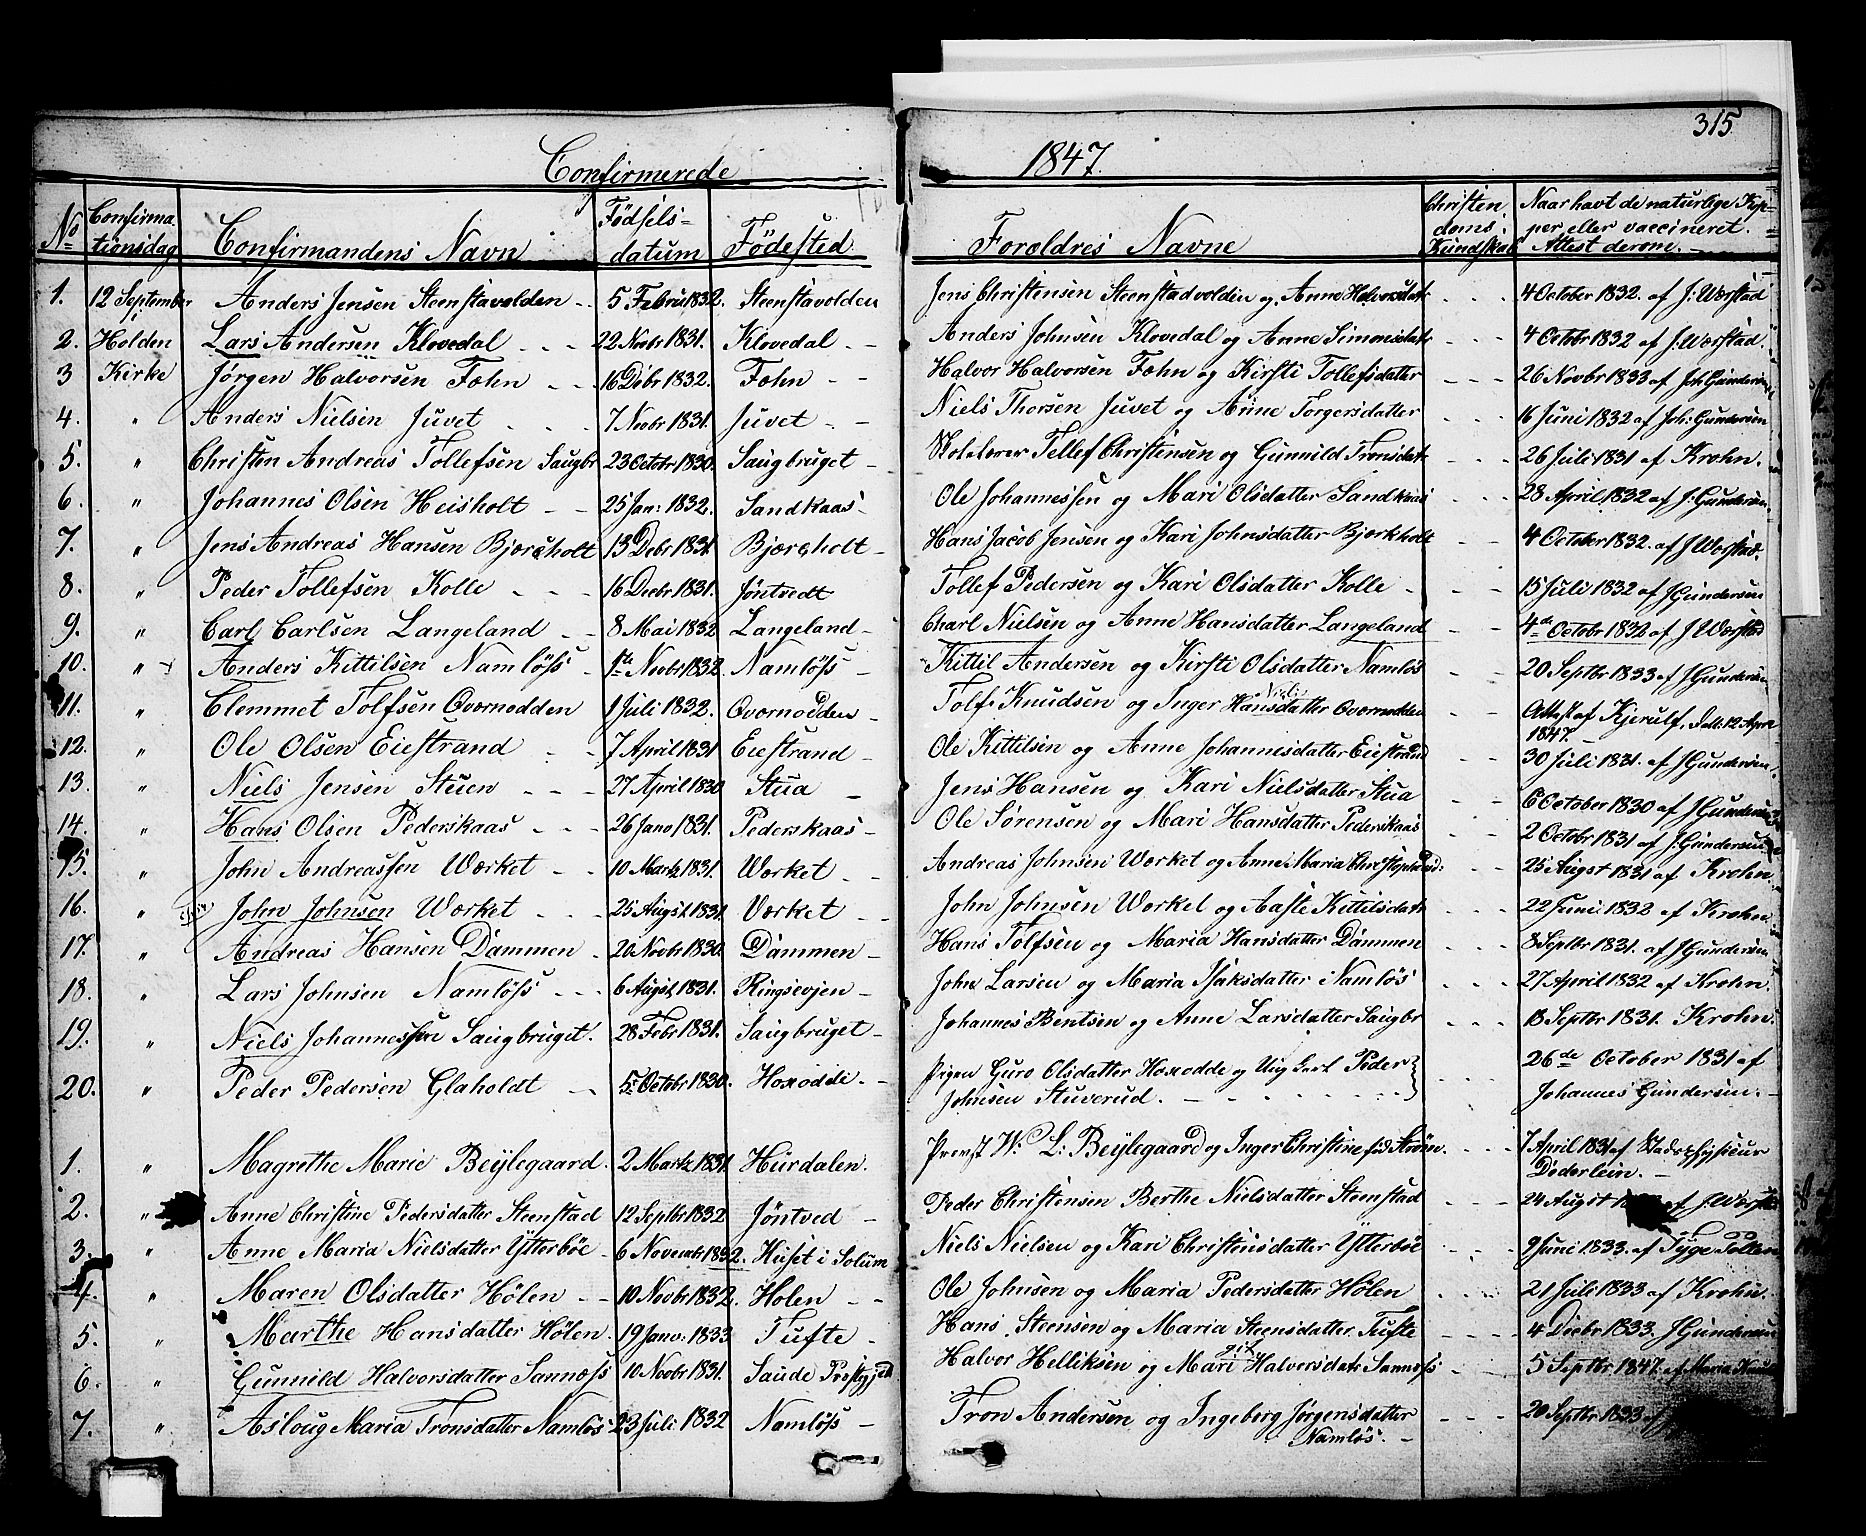 315
Confirmerede 1847.
No Confirmationsdag Confirmandens Navn Födselsdatum Födested Forældres Navne Christendoms Kundskab Naar havt de naturlige Kopper eller vaccineret. Attest derom.
1. 12 September Anders Jensen Steenstavolden 5 Febru 1832. Steenstavolden Jens Christensen Steenstadvolden og Anne Halvorsdatr 4 October 1832. af J: Worstad
2. i Holden Lars Andersen Klovedal 22 Novbr 1831. Klovedal Anders Johnsen Klovedal og Anne Simonsdatr 4 Octobr 1832 af J. Worstad.
3 Kirke Jørgen Halvorsen Fæhn 16 Debr 1832. Fæhn Halvor Halvorsen Fæhn og Kirsti Tollefsdatter 26 Novbr 1833 af Joh Gundersen
4. " Anders Nielsen Juvet 7 Novbr 1831. Juvet Niels Thorsen Juvet og Anne Torgersdatter 16 Juni 1832 af Joh: Gundersen
5. " Christen Andreas Tollefsen Saugbr 23 Octobr 1830. Saugbruget Skolelærer Tellef Christensen og Gunnild Tronsdatr 26 Juli 1831 af Krohn.
6. " Johannes Olsen Heisholt 25 Jan: 1832. Sandkaas Ole Johannessen og Mari Olsdatter Sandkaas 28 April 1832 af J: Gundersen.
7. " Jens Andreas Hansen Bjørcholt 13 Debr 1831. Bjørcholt Hans Jacob Jensen og Kari Johnsdatter Bjørkholt 4 October 1832. af J Worstad.
8. " Peder Tollefsen Kolle 16 Decbr 1831. Jöntvedt Tollef Pedersen og Kari Olsdatter Kolle 15 Juli 1832 af J Gundersen
9. " Carl Carlsen Langeland 8 Mai 1832 Langeland Charl Nielsen og Anne Hansdatter Langeland 4de Octobr 1832 af J Worstad
10. " Anders Kittilsen Namlöss 1ste Novbr 1832. Namlöss Kittil Andersen og Kirsti Olsdatter Namlös 20 Septbr 1833 af J Gundersen
11. " Clemmet Tolfsen Overnodden 1 Juli 1832. Overnodden Tolf Knudsen og Inger Niels Hansdatter Overnodden Attest af Kjerulf, Dat: 12 April 1847.
12. " Ole Olsen Eiestrand 7 April 1831 Eiestrand Ole Kittilsen og Anne Johannisdatter Eiestrand 30 Juli 1831. af J Gundersen.
13. " Niels Jensen Stuen 27 April 1830 Stua Jens Hansen og Kari Nielsdatter Stua 6 October 1830 af J Gundersen
14. " Hans Olsen Pederskaas 26 Janv 1831. Pederskaas Ole Sørensen og Mari Hansdatter Pederskaas 2 Octobr 1831 af J. Gundersen
15. " John Andreassen Værket 10 Martz 1831. Værket Andreas Johnsen Værket og Anne Maria Christophersd: 25 August 1831 af Krohn.
16. " John Johnsen Værket 25 August 1831. Værket John Johnsen Værket og Aaste Kittilsdatr 22 Juni 1832 af Krohn
17. " Andreas Hansen Dammen 20 Novbr 1830. Dammen Hans Tolfsen og Maria Hansdatter Dammen 8 Septbr 1831. af J Gundersen
18. " Lars Johnsen Namlöss 6 August 1831. Ringsevjen John Larsen og Maria Isaksdatter Namlös 27 April 1832 af Krohn.
19. " Niels Johannessen Saugbruget. 28 Febr 1831. Saugbruget Johannes Bentsen og Anne Larsdatter Saugbr 18 Septbr 1831. Krohn.
20. " Peder Pedersen Glaholdt 5 Octobr 1830. Hoxodde Pigen Guro Olsdatter Hoxodde og Ung Karl Peder Johnsen Stuverud. 26de October 1831 af Johannes Gundersen.
1. " Magrethe Marie Beylegaard. 2 Martz 1831. Hurdalen. Provst W: L: Beylegaard og Inger Christine fød Strøm. 7 April 1831 af Stadsphysicus Dederlein.
2. " Anne Christine Pedersdatter Steenstad 12 Septbr 1832 Jöntved Peder Christensen Berthe Nielsdatter Steenstad 24 August af J. Worstad
3. " Anne Maria Nielsdatter Ytterböe 6 Novembr 1832. Huset i Solum Niels Nielsen og Kari Christensdatter Ytterböe 9 Juni 1833. af Tyge Tollefsen
4. " Maren Olsdatter Hölen 10 Novbr 1832. Holen Ole Johnsen og Maria Pedersdatter Hölen 21 Juli 1833 af Krohn.
5. " Marthe Hansdatter Hölen. 19 Janv: 1833 Tufte Hans Steensen og Maria Steensdatter Tufte 4 Decbr 1833. J Gundersen
6. " Gunnild Halvorsdatter Sannæss 10 Novbr 1831. Saude Prestegjeld Halvor Helliksen og Mari Halvorsdatr Sannæss 5 Septbr 1847. af Maria
7. " Asloug Maria Tronsdatter Namlös 23 Juli 1832 Namlöss Tron Andersen og Ingeberg Jørgensdatter Namlös. 20 Septbr 1833 af J